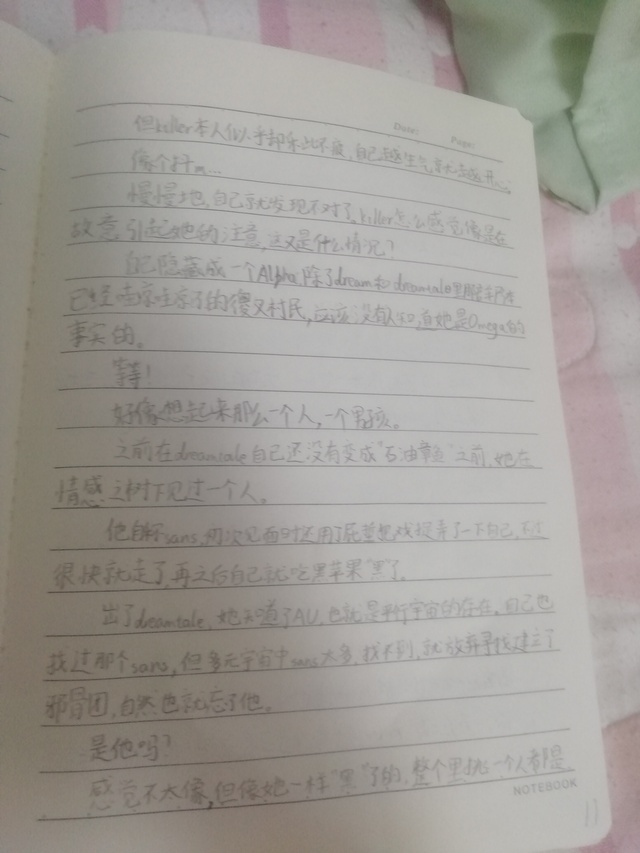 Date: Page:
但killer本人似乎却乐此不疲,自己越生气,就越开心
像个抖m…
慢慢地,自己就发现不对了,killer怎么感觉像是在
故意引起她的注意,这又是什么情况?
自己隐藏成一个Alpha,除了dream和dreamtale里那些已经
已经哇凉哇凉的傻叉村民,应该没有人知道她是Omega的
事实的。
等等!
好像想起来那么一个人,一个男孩。
之前在dreamtale自己还没有变成"石油章鱼"之前,她在
情感之树下见过一个人。
他自称sans,初次见面时还用了屁垫恶戏捉弄了一下自己,不过
很快就走了,再之后自己就吃黑苹果"黑"了。
出了dreamtale,她知道了AU,也就是平行宇宙的存在,自己也
找过那个sans,但多元宇宙中sans太多,找不到,就放弃寻找建立了
邪骨团,自然也就忘了他。
是他吗?
感觉不太像,但像她一样"黑"了的,整个里挑一个人都是
NOTEBOOK
11